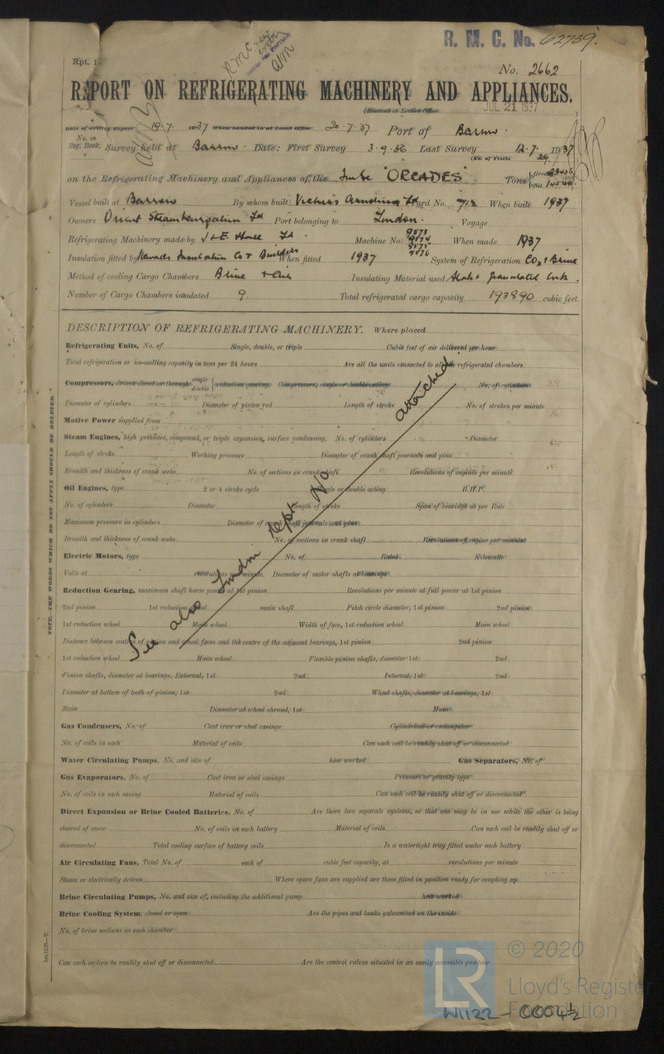 R. M. C. No. 62739.
Rpt. 1
No. 2662
REPORT ON REFRIGERATING MACHINERY AND APPLIANCES.
(Received at London Office
JUL 21 1937
Date of writing Report 19.7.1937 When handed in at Local Office 20.7.37 Port of Barrow.
No. in Reg. Book. Survey held at Barrow. Date: First Survey 3.9.36 Last Survey 12.7.1937
(No. of Visits 24)
on the Refrigerating Machinery and Appliances of the "ORCADES" Tons
Vessel built at Barrow By whom built Vickers Armstrong Ld Yard No. 712 When built 1937
Owners Orient Steam Navigation Ld Port belonging to London. Voyage
Refrigerating Machinery made by J & E Hall Ld Machine No. 9573 9574 9575 9576 When made 1937
Insulation fitted by Insulation Co & Builders When fitted 1937 System of Refrigeration CO2 & Brine
Method of cooling Cargo Chambers Brine & Air Insulating Material used Slab & granulated Cork.
Number of Cargo Chambers insulated 9. Total refrigerated cargo capacity 193890 cubic feet.
DESCRIPTION OF REFRIGERATING MACHINERY. Where placed
Refrigerating Units, No. of Single, double, or triple Cubic feet of air delivered per hour
Total refrigeration or ice-melting capacity in tons per 24 hours Are all the units connected to all the refrigerated chambers
Compressors, driven direct or through single double reduction gearing. Compressors, single or double acting No. of cylinders
Diameter of cylinders Diameter of piston rod Length of stroke No. of strokes per minute
Motive Power supplied from
Steam Engines, high pressure, compound, or triple expansion, surface condensing. No. of cylinders Diameter
Length of stroke Working pressure Diameter of crank shaft journals and pins
Breadth and thickness of crank webs No. of sections in crank shaft Revolutions of engines per minute
Oil Engines, type 2 or 4 stroke cycle Single or double acting B.H.P.
No. of cylinders Diameter Length of stroke Span of bearings as per Rule
Maximum pressure in cylinders Diameter of crank shaft journals and pins
Breadth and thickness of crank webs No. of sections in crank shaft Revolutions of engine per minute
Electric Motors, type No. of Rated Kilowatts
Volts at revolutions per minute. Diameter of motor shafts at bearings
Reduction Gearing, maximum shaft horse power at 1st pinion Revolutions per minute at full power at 1st pinion
2nd pinion 1st reduction wheel main shaft Pitch circle diameter, 1st pinion 2nd pinion
1st reduction wheel Main wheel Width of face, 1st reduction wheel Main wheel
Distance between centres of pinion and wheel faces and the centre of the adjacent bearings, 1st pinion 2nd pinion
1st reduction wheel Main wheel Flexible pinion shafts, diameter 1st 2nd
Pinion shafts, diameter at bearings, External, 1st 2nd Internal, 1st 2nd
Diameter at bottom of teeth of pinion, 1st 2nd Wheel shafts, diameter at bearings, 1st
Main Diameter at wheel shroud, 1st Main
Gas Condensers, No. of Cast iron or steel casings Cylindrical or rectangular
No. of coils in each Material of coils Can each coil be readily shut off or disconnected
Water Circulating Pumps, No. and size of how worked Gas Separators, No. of
Gas Evaporators, No. of Cast iron or steel casings Pressure or gravity type
No. of coils in each casing Material of coils Can each coil be readily shut off or disconnected
Direct Expansion or Brine Cooled Batteries, No. of Are there two separate systems, so that one may be in use while the other is being
cleared of snow No. of coils in each battery Material of coils Can each coil be readily shut off or
disconnected Total cooling surface of battery coils Is a watertight tray fitted under each battery
Air Circulating Fans, Total No. of each of cubic feet capacity, at revolutions per minute
Steam or electrically driven Where spare fans are supplied are these fitted in position ready for coupling up
Brine Circulating Pumps, No. and size of, including the additional pump how worked
Brine Cooling System, closed or open Are the pipes and tanks galvanised on the inside
No. of brine sections in each chamber
Can each section be readily shut off or disconnected Are the control valves situated in an easily accessible position
See also London Rept No attached
NOTE.—THE WORDS WHICH DO NOT APPLY SHOULD BE DELETED.
© 2020
LR
Lloyd's Register
Foundation
W1122-0004½